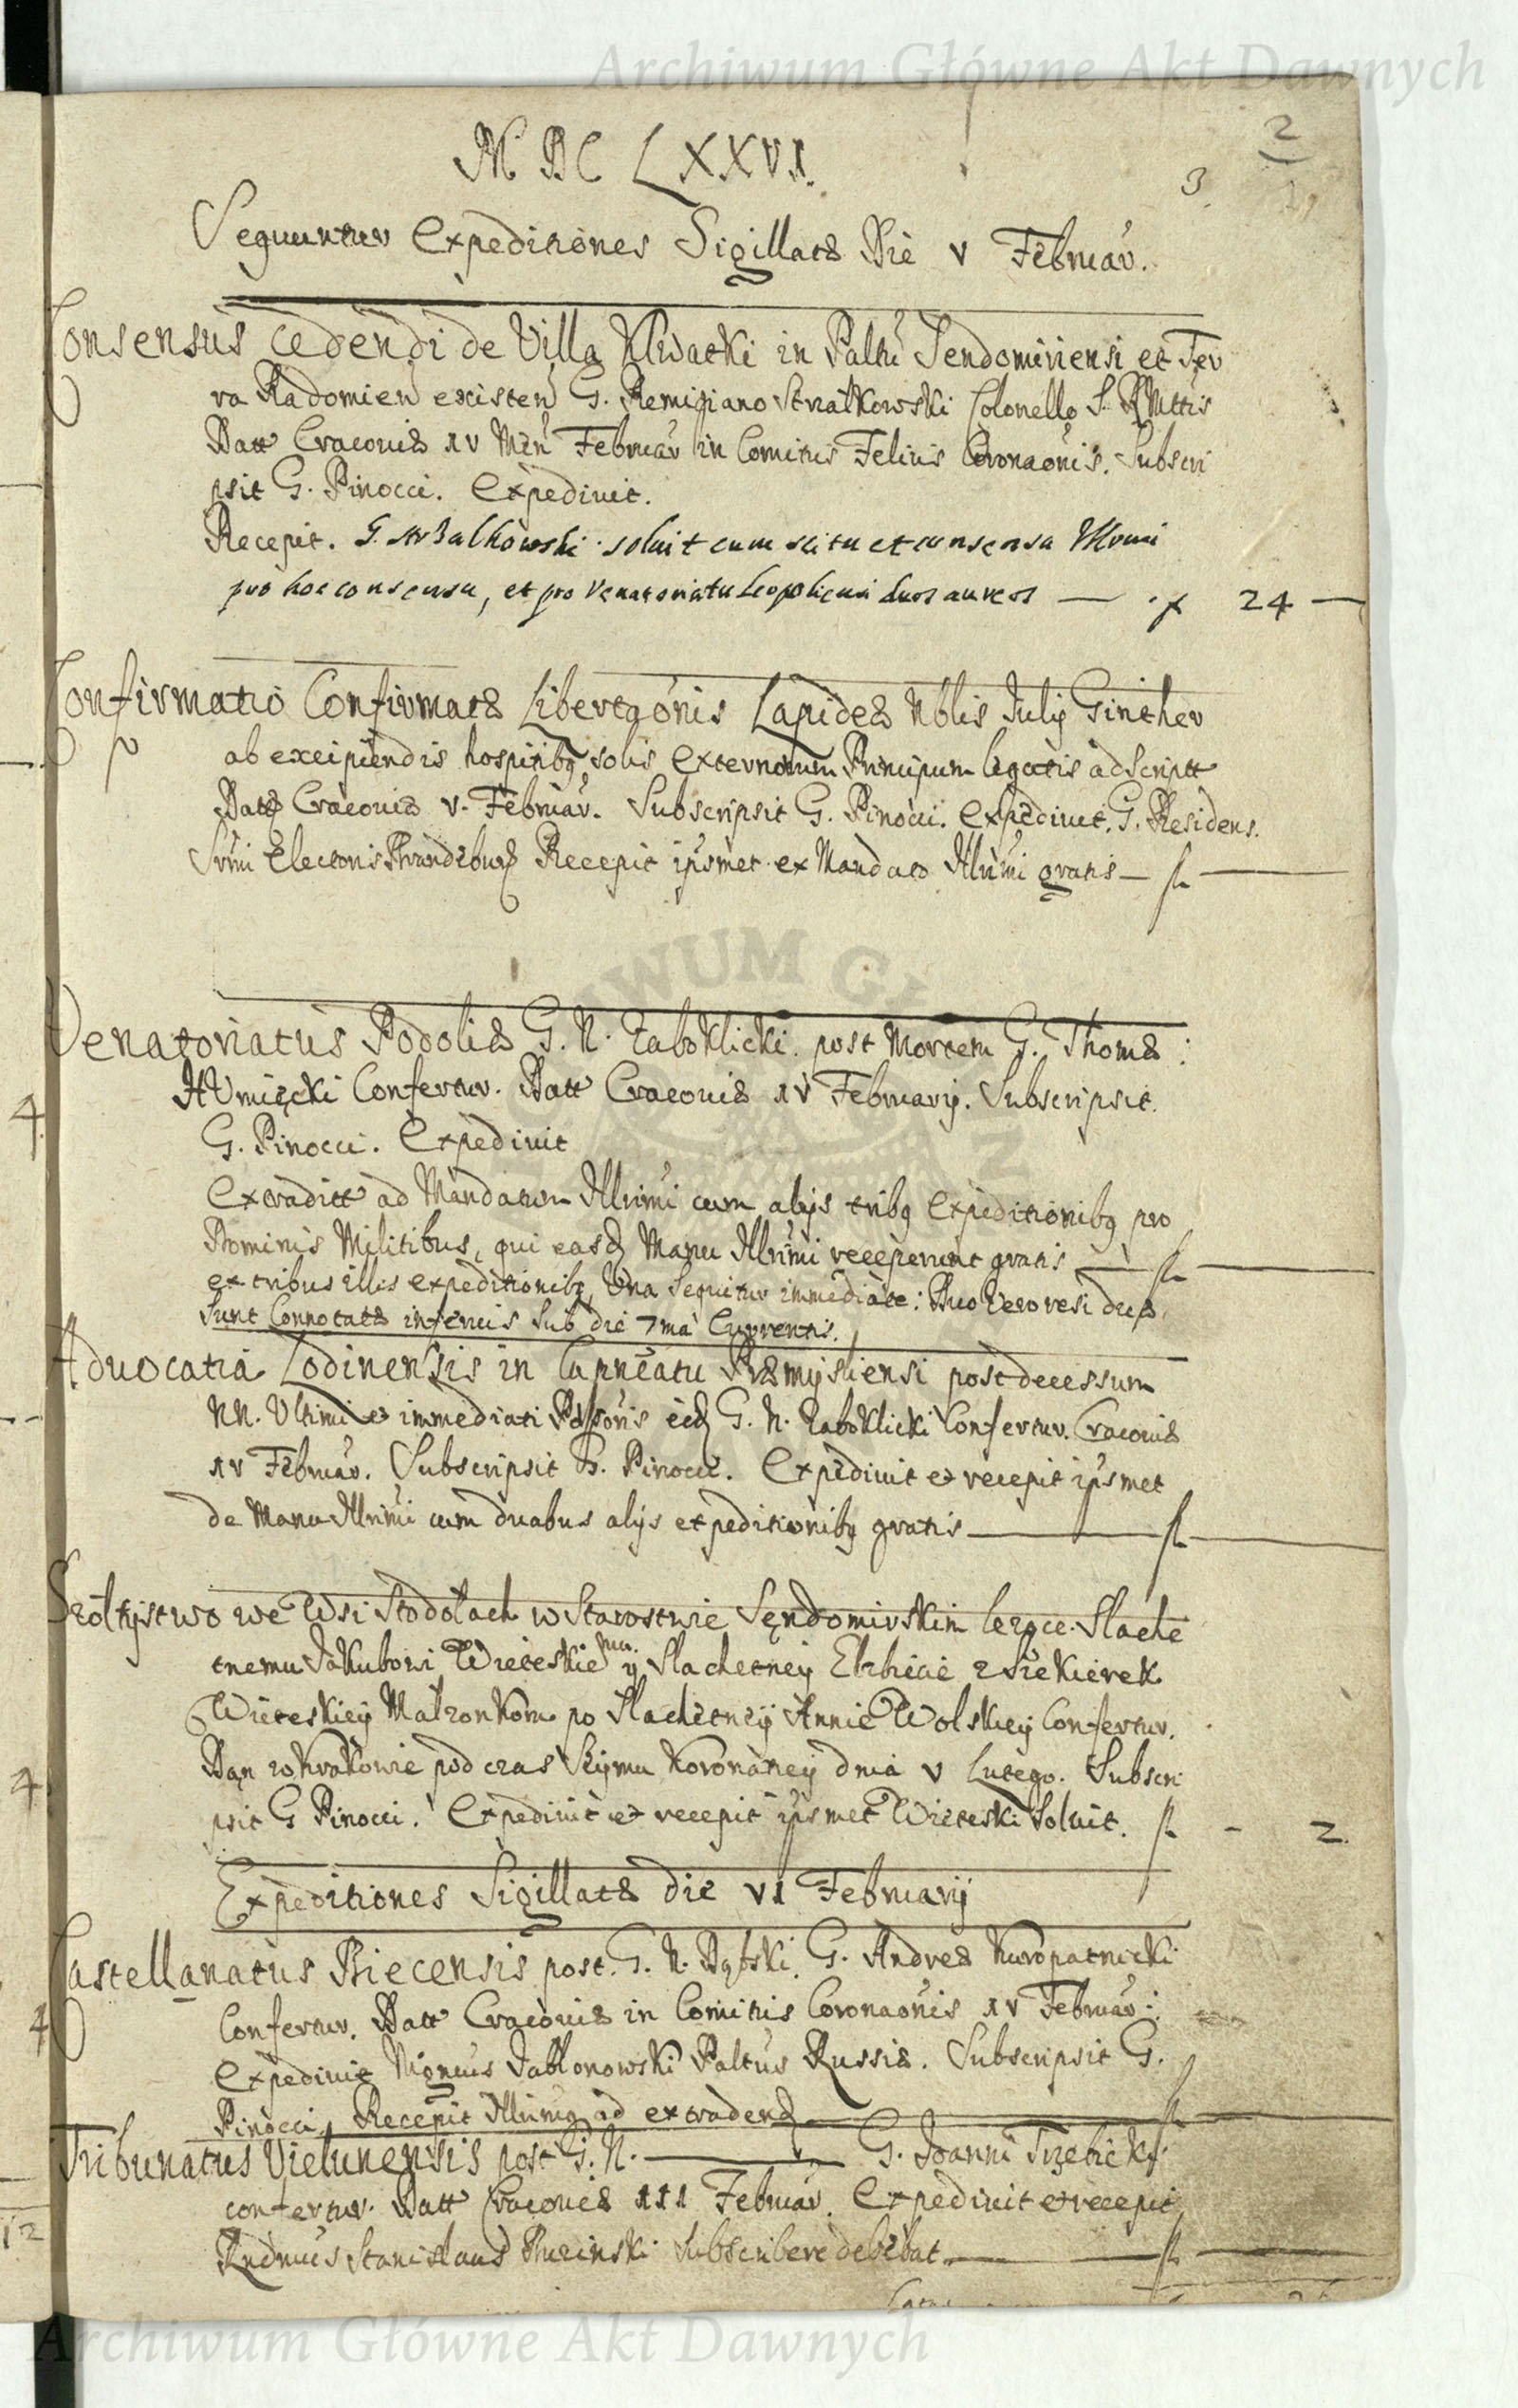 Archiwum Główne Akt Dawnych
2
3.
M DC LXXVI.
Sequuntur Expeditiones Sigillatæ Die V Februar.
Consensus cedendi de Villa Klwatki in Paltu Sendomiriensi et Ter
ra Radomien existen G. Remigiano Strzałkowski Colonello S. R Mttis
Datt Cracoviæ IV Men Februar in Comitiis Felicis Coronaonis. Subscri
psit G. Pinocci. Expedivit.
Recepit. G. Strzalkowski soluit cum scitu et consensu Illrmi
pro hoc consensu, et pro Venatoriatu Leopoliensi duos aureos — f 24 —
Confirmatio Confirmatæ Libertaonis Lapideæ Nblis Julij Ginther
ab excipiendis hospitibq solis Externorum Principum legatis adscriptt
Datt Cracoviæ V. Februar. Subscripsit G. Pinocci. Expedivit. G. Residens.
Srmi Electoris Brandeburg Recepit ipsmet ex Mandato Illrmi gratis — fl —
Venatoriatus Podoliæ G. N. Zaboklicki post Mortem G. Thomæ
Humięcki Confertur. Datt Cracoviæ IV Februarij. Subscripsit.
G. Pinocci. Expedivit
Extraditt ad Mandatum Illrimi cum alijs tribq Expeditionibq pro
Dominis Militibus, qui easd Manu Illrimi receperunt gratis — fl —
ex tribus illis expeditionibq, Una Sequitur immediate: Duo Vero resi duæ
Sunt Connotatæ inferius Sub die 7ma Currentis.
Advocatia Lodinensis in Capneatu Præmysliensi post decessum
NN. Ultimi et immediati Possoris eid G. N. Zaboklicki Confertur. Cracoviæ
IV Februar. Subscripsit G. Pinocci. Expedivit et recepit ipsmet
de Manu Illrimi cum duabus alijs expeditionibq gratis — fl —
Szołtystwo we Wsi Stodołach w Starostwie Sędomirskim leżące Slache
tnemu Jakubowi Wieteskiemu y Slachetney Elzbiecie z Siekierek
Wieteskiey Małzonkom po Slachetney Annie Wolskiey Confertur.
Dan w Krakowie pod czas Seymu Koronaney dnia V Lutego. Subscri
psit G Pinocci. Expedivit et recepit ipsmet Wieteski Soluit. fl - 2.
Expeditiones Sigillatæ die VI Februarij
Castellanatus Biecensis post G. N. Dębski. G. Andreæ Kuropatnicki
Confertur. Datt Cracoviæ in Comitiis Coronaonis IV Februar:
Expedivit Mgncus Jabłonowski Paltus Russiæ. Subscripsit G.
Pinocci, Recepit Illrimq ad extradend — fl —
Tribunatus Vielunensis post G. N. — G. Joanni Trzebicki
confertur. Datt Cracoviæ III Februar. Expedivit et recepit
Rndmus Stanislaus Buzinski Subscribere debebat — fl —
Archiwum Główne Akt Dawnych